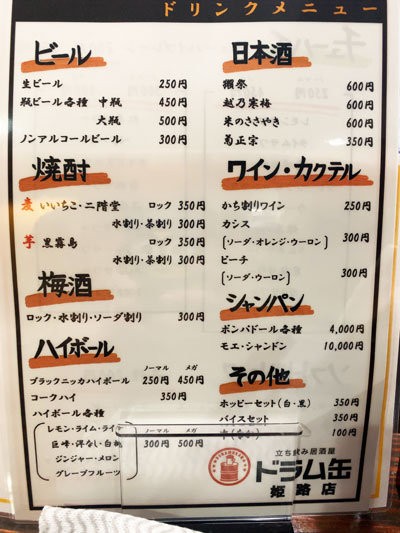 ドリンクメニュー
ビール
生ビール 250円
瓶ビール各種 中瓶 450円
大瓶 500円
ノンアルコールビール 300円
焼酎
麦 いいちこ・二階堂 ロック 350円
水割り・茶割り 300円
芋 黒霧島 ロック 350円
水割り・茶割り 300円
梅酒
ロック・水割り・ソーダ割り 300円
ハイボール
ノーマル メガ
ブラックニッカハイボール 250円 450円
コークハイ 350円
ハイボール各種
レモン・ライム・ライチ ノーマル メガ
巨峰・洋なし・白桃 300円 500円
ジンジャー・メロン
グレープフルーツ
日本酒
獺祭 600円
越乃寒梅 600円
米のささやき 600円
菊正宗 350円
ワイン・カクテル
かち割りワイン 250円
カシス
(ソーダ・オレンジ・ウーロン) 300円
ピーチ
(ソーダ・ウーロン) 300円
シャンパン
ポンパドール各種 4,000円
モエ・シャンドン 10,000円
その他
ホッピーセット(白・黒) 350円
バイスセット 350円
中(なか) 100円
立ち飲み居酒屋
ドラム缶
姫路店